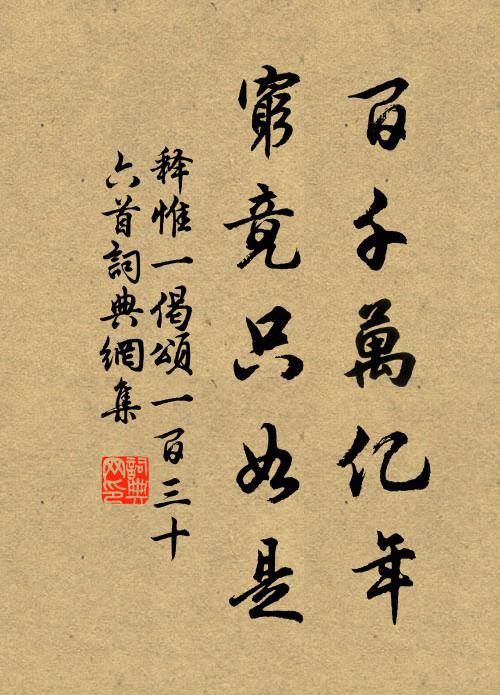 百千萬亿年
窮竟只如是
释惟一偈頌一百三十
六首詞典網集
詞典
网印